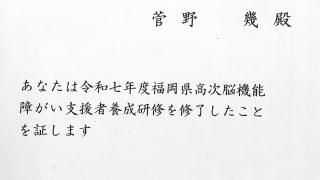 菅野　幾殿
あなたは令和七年度福岡県高次脳機能
障がい支援者養成研修を修了したこと
を証します